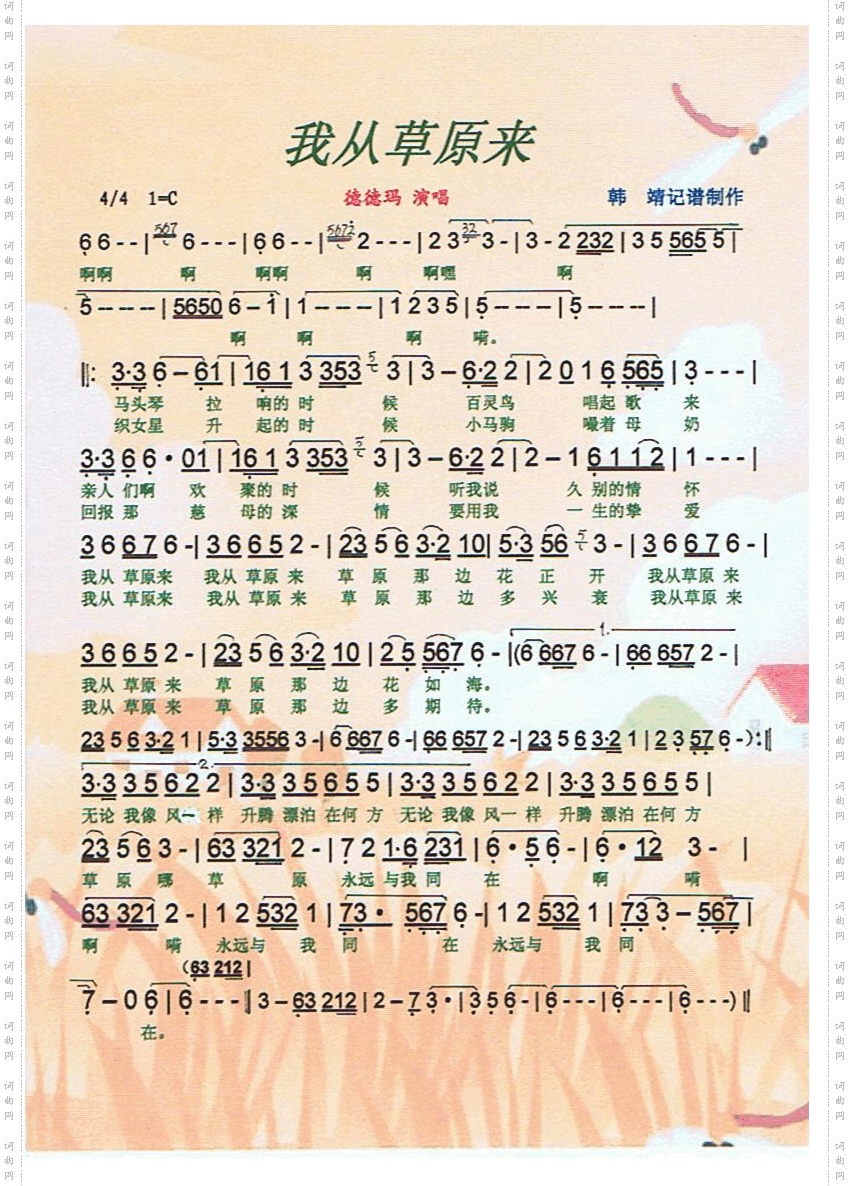 我从草原来
4/4 1=C 德德玛 演唱 韩 靖记谱制作
6 6 - - | 567 6 - - - | 6 6 - - | 5672 2 - - - | 2 3 32 3 - | 3 - 2 232 | 3 5 565 5 |
啊啊 啊 啊啊 啊 啊嘿 啊
5 - - - | 5650 6 - 1 | 1 - - - | 1 2 3 5 | 5 - - - | 5 - - - |
啊 啊 啊 唷。
‖: 3·3 6 - 61 | 16 1 3 353 5 3 | 3 - 6·2 2 | 2 0 1 6 565 | 3 - - - |
马头琴 拉 响的 时 候 百灵鸟 唱起 歌 来
织女星 升 起的 时 候 小马驹 嘬着 母 奶
3·3 6 6 · 01 | 16 1 3 353 5 3 | 3 - 6·2 2 | 2 - 1 6 1 1 2 | 1 - - - |
亲人 们啊 欢 聚的 时 候 听我说 久 别的情 怀
回报 那 慈 母的 深 情 要用我 一 生的挚 爱
3 6 6 7 6 - | 3 6 6 5 2 - | 23 5 6 3·2 10 | 5·3 56 5 3 - | 3 6 6 7 6 - |
我从 草原来 我从 草原 来 草 原 那 边 花 正 开 我从草原 来
我从 草原来 我从 草原 来 草 原 那 边 多 兴 衰 我从草原 来
1.
3 6 6 5 2 - | 23 5 6 3·2 10 | 2 5 567 6 - | (6 667 6 - | 66 657 2 - |
我从 草原 来 草 原 那 边 花 如 海。
我从 草原 来 草 原 那 边 多 期 待。
23 5 6 3·2 1 | 5·3 3556 3 - | 6 667 6 - | 66 657 2 - | 23 5 6 3·2 1 | 2 3 57 6 - ) :‖
2.
3·3 3 5 6 2 2 | 3·3 3 5 6 5 5 | 3·3 3 5 6 2 2 | 3·3 3 5 6 5 5 |
无论 我像 风一 样 升腾 漂泊 在何 方 无论 我像 风一 样 升腾 漂泊 在何 方
23 5 6 3 - | 63 321 2 - | 7 2 1·6 231 | 6 · 5 6 - | 6 · 12 3 - |
草 原 哪 草 原 永远 与我 同 在 啊 唷
63 321 2 - | 1 2 532 1 | 73 · 567 6 - | 1 2 532 1 | 73 3 - 567 |
啊 唷 永远与 我 同 在 永远与 我 同
(63 212 |
7 - 0 6 | 6 - - - ‖ 3 - 63 212 | 2 - 7 3 · | 3 5 6 - | 6 - - - | 6 - - - | 6 - - - ) ‖
在。
词曲网